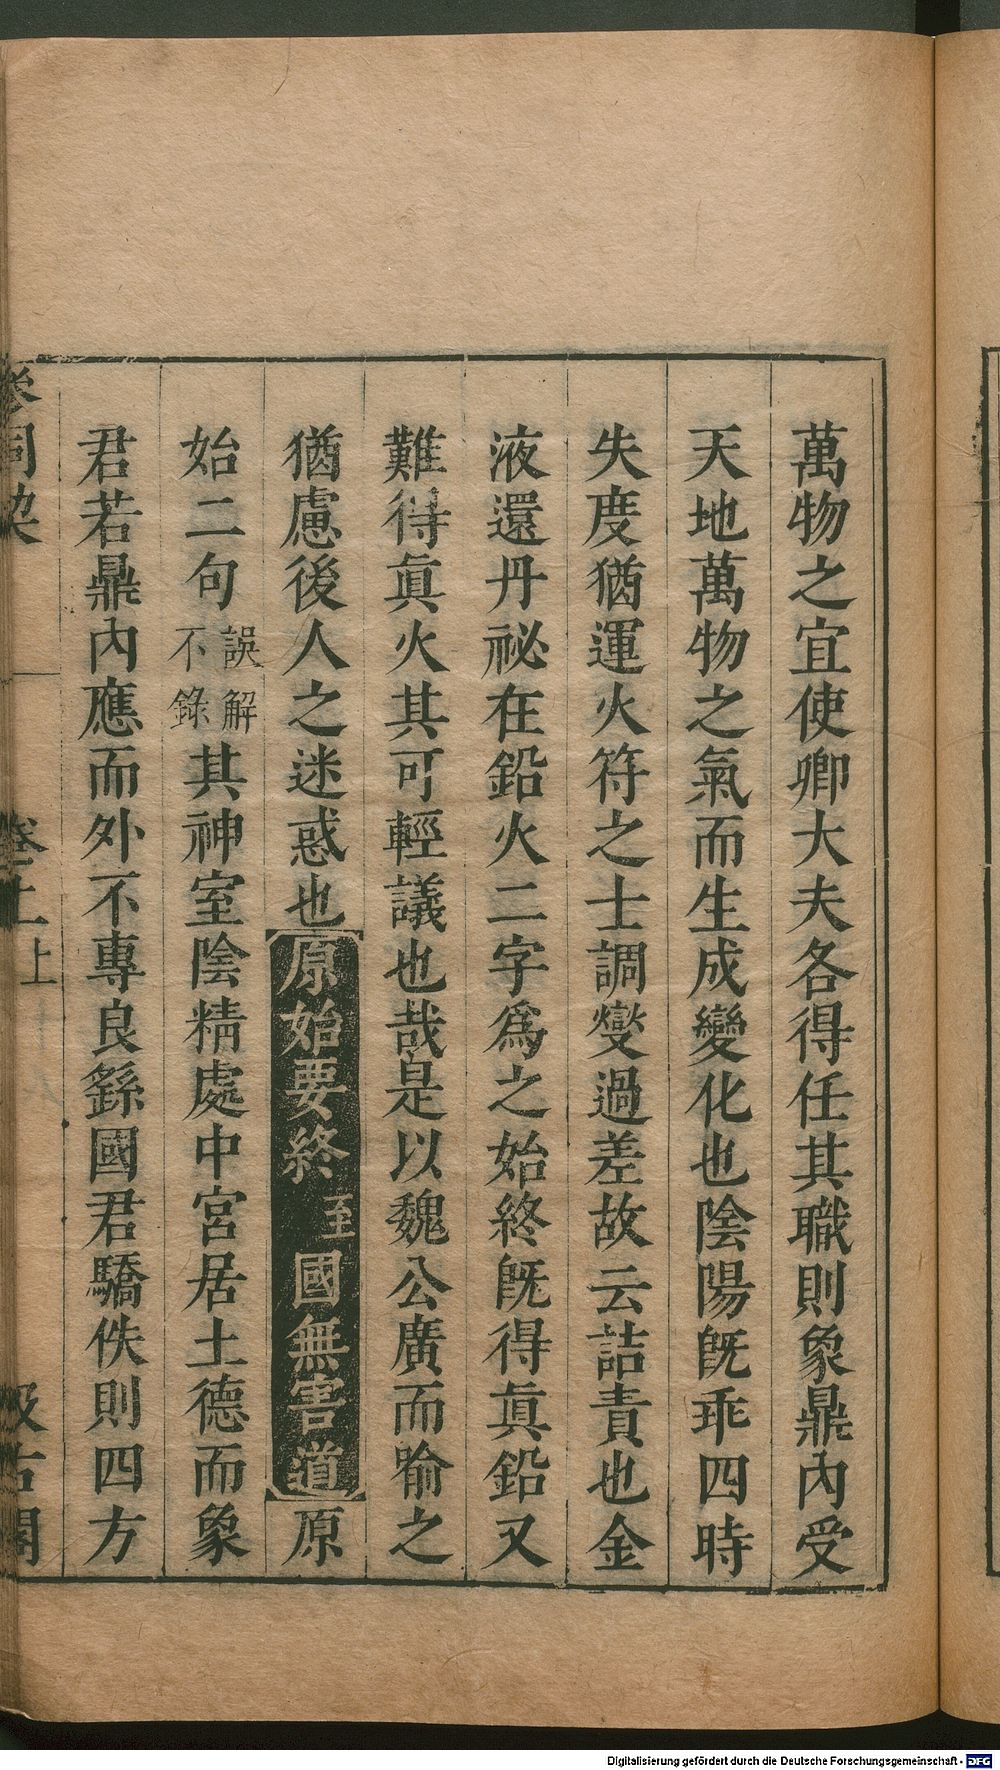 萬物之宜使卿大夫各得任其職則象鼎內受
天地萬物之氣而生成變化也陰陽旣乖四時
失度猶運火符之士調燮過差故云詰責也金
液還丹祕在鉛火二字爲之始終旣得眞鉛又
難得眞火其可輕議也哉是以魏公廣而喻之
猶慮後人之迷惑也原始要終至國無害道原
始二句誤解不錄其神室陰精處中宮居土德而象
君若鼎內應而外不專良繇國君驕佚則四方
參同契 卷上上 汲古閣
Digitalisierung gefördert durch die Deutsche Forschungsgemeinschaft - DFG